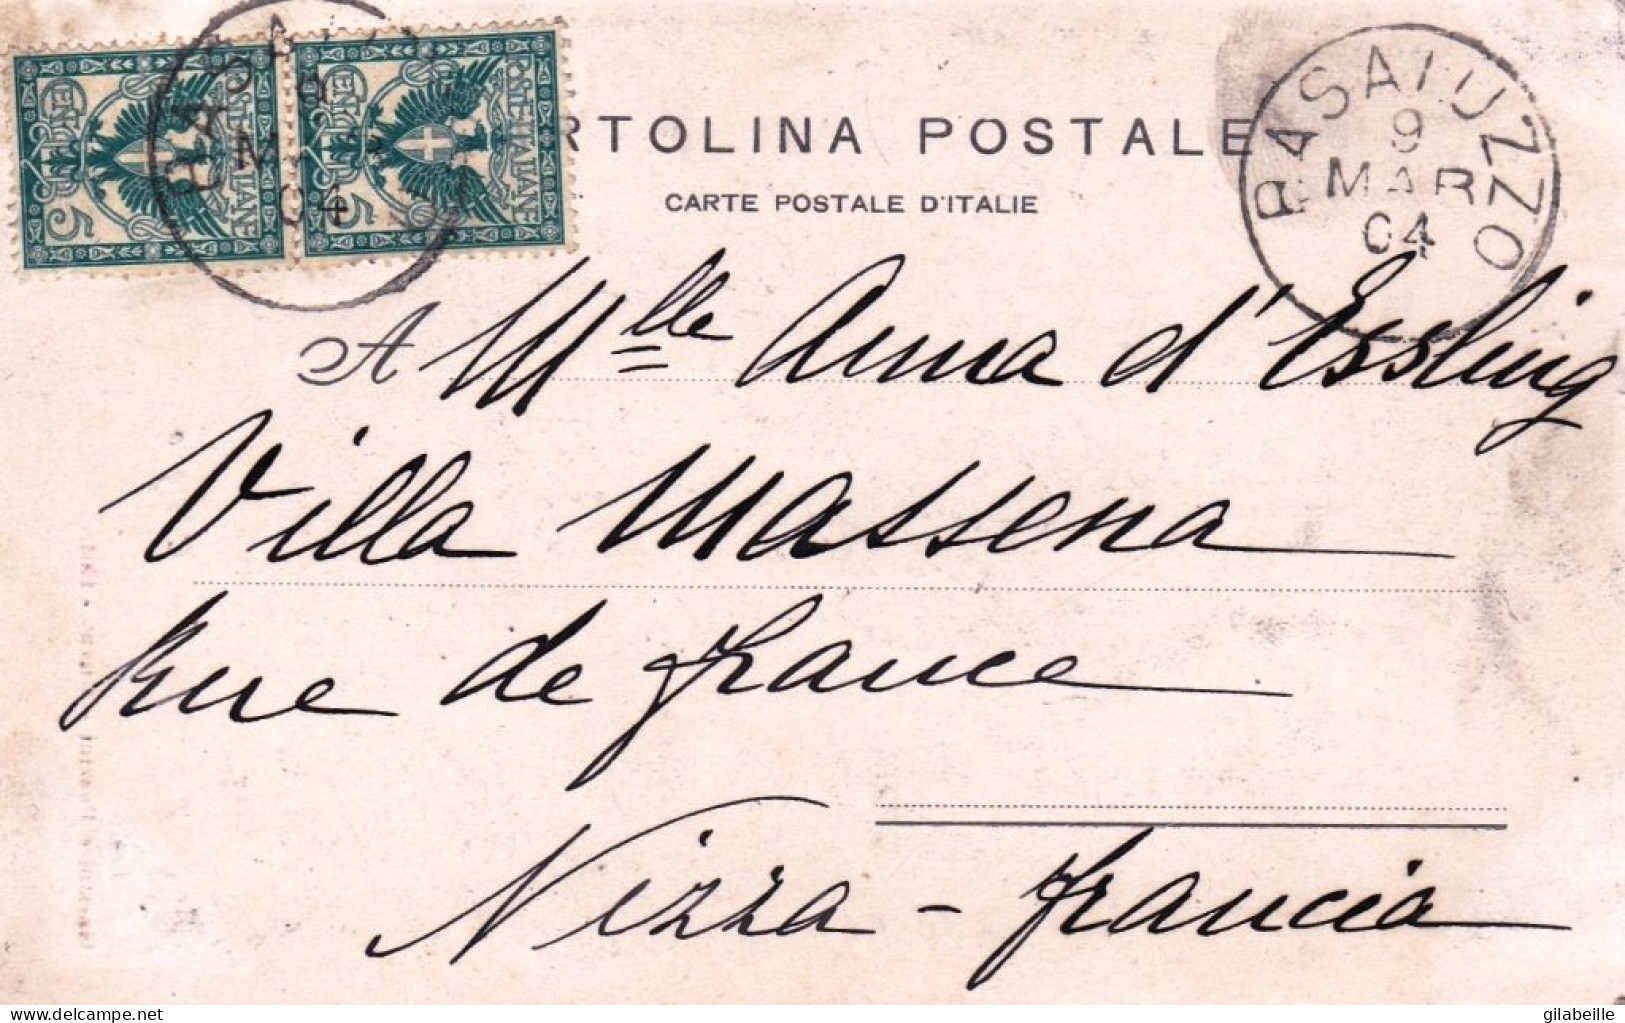 POSTE ITALIANE
CENT. 5
POSTE ITALIANE
CENT. 5
9
MAR
04
RTOLINA POSTALE
CARTE POSTALE D'ITALIE
SALUZZO
9
MAR
04
A Mlle Anna d'Essling
Villa Massena
Rue de France
Nizza - Francia
delcampe.net
gilabeille